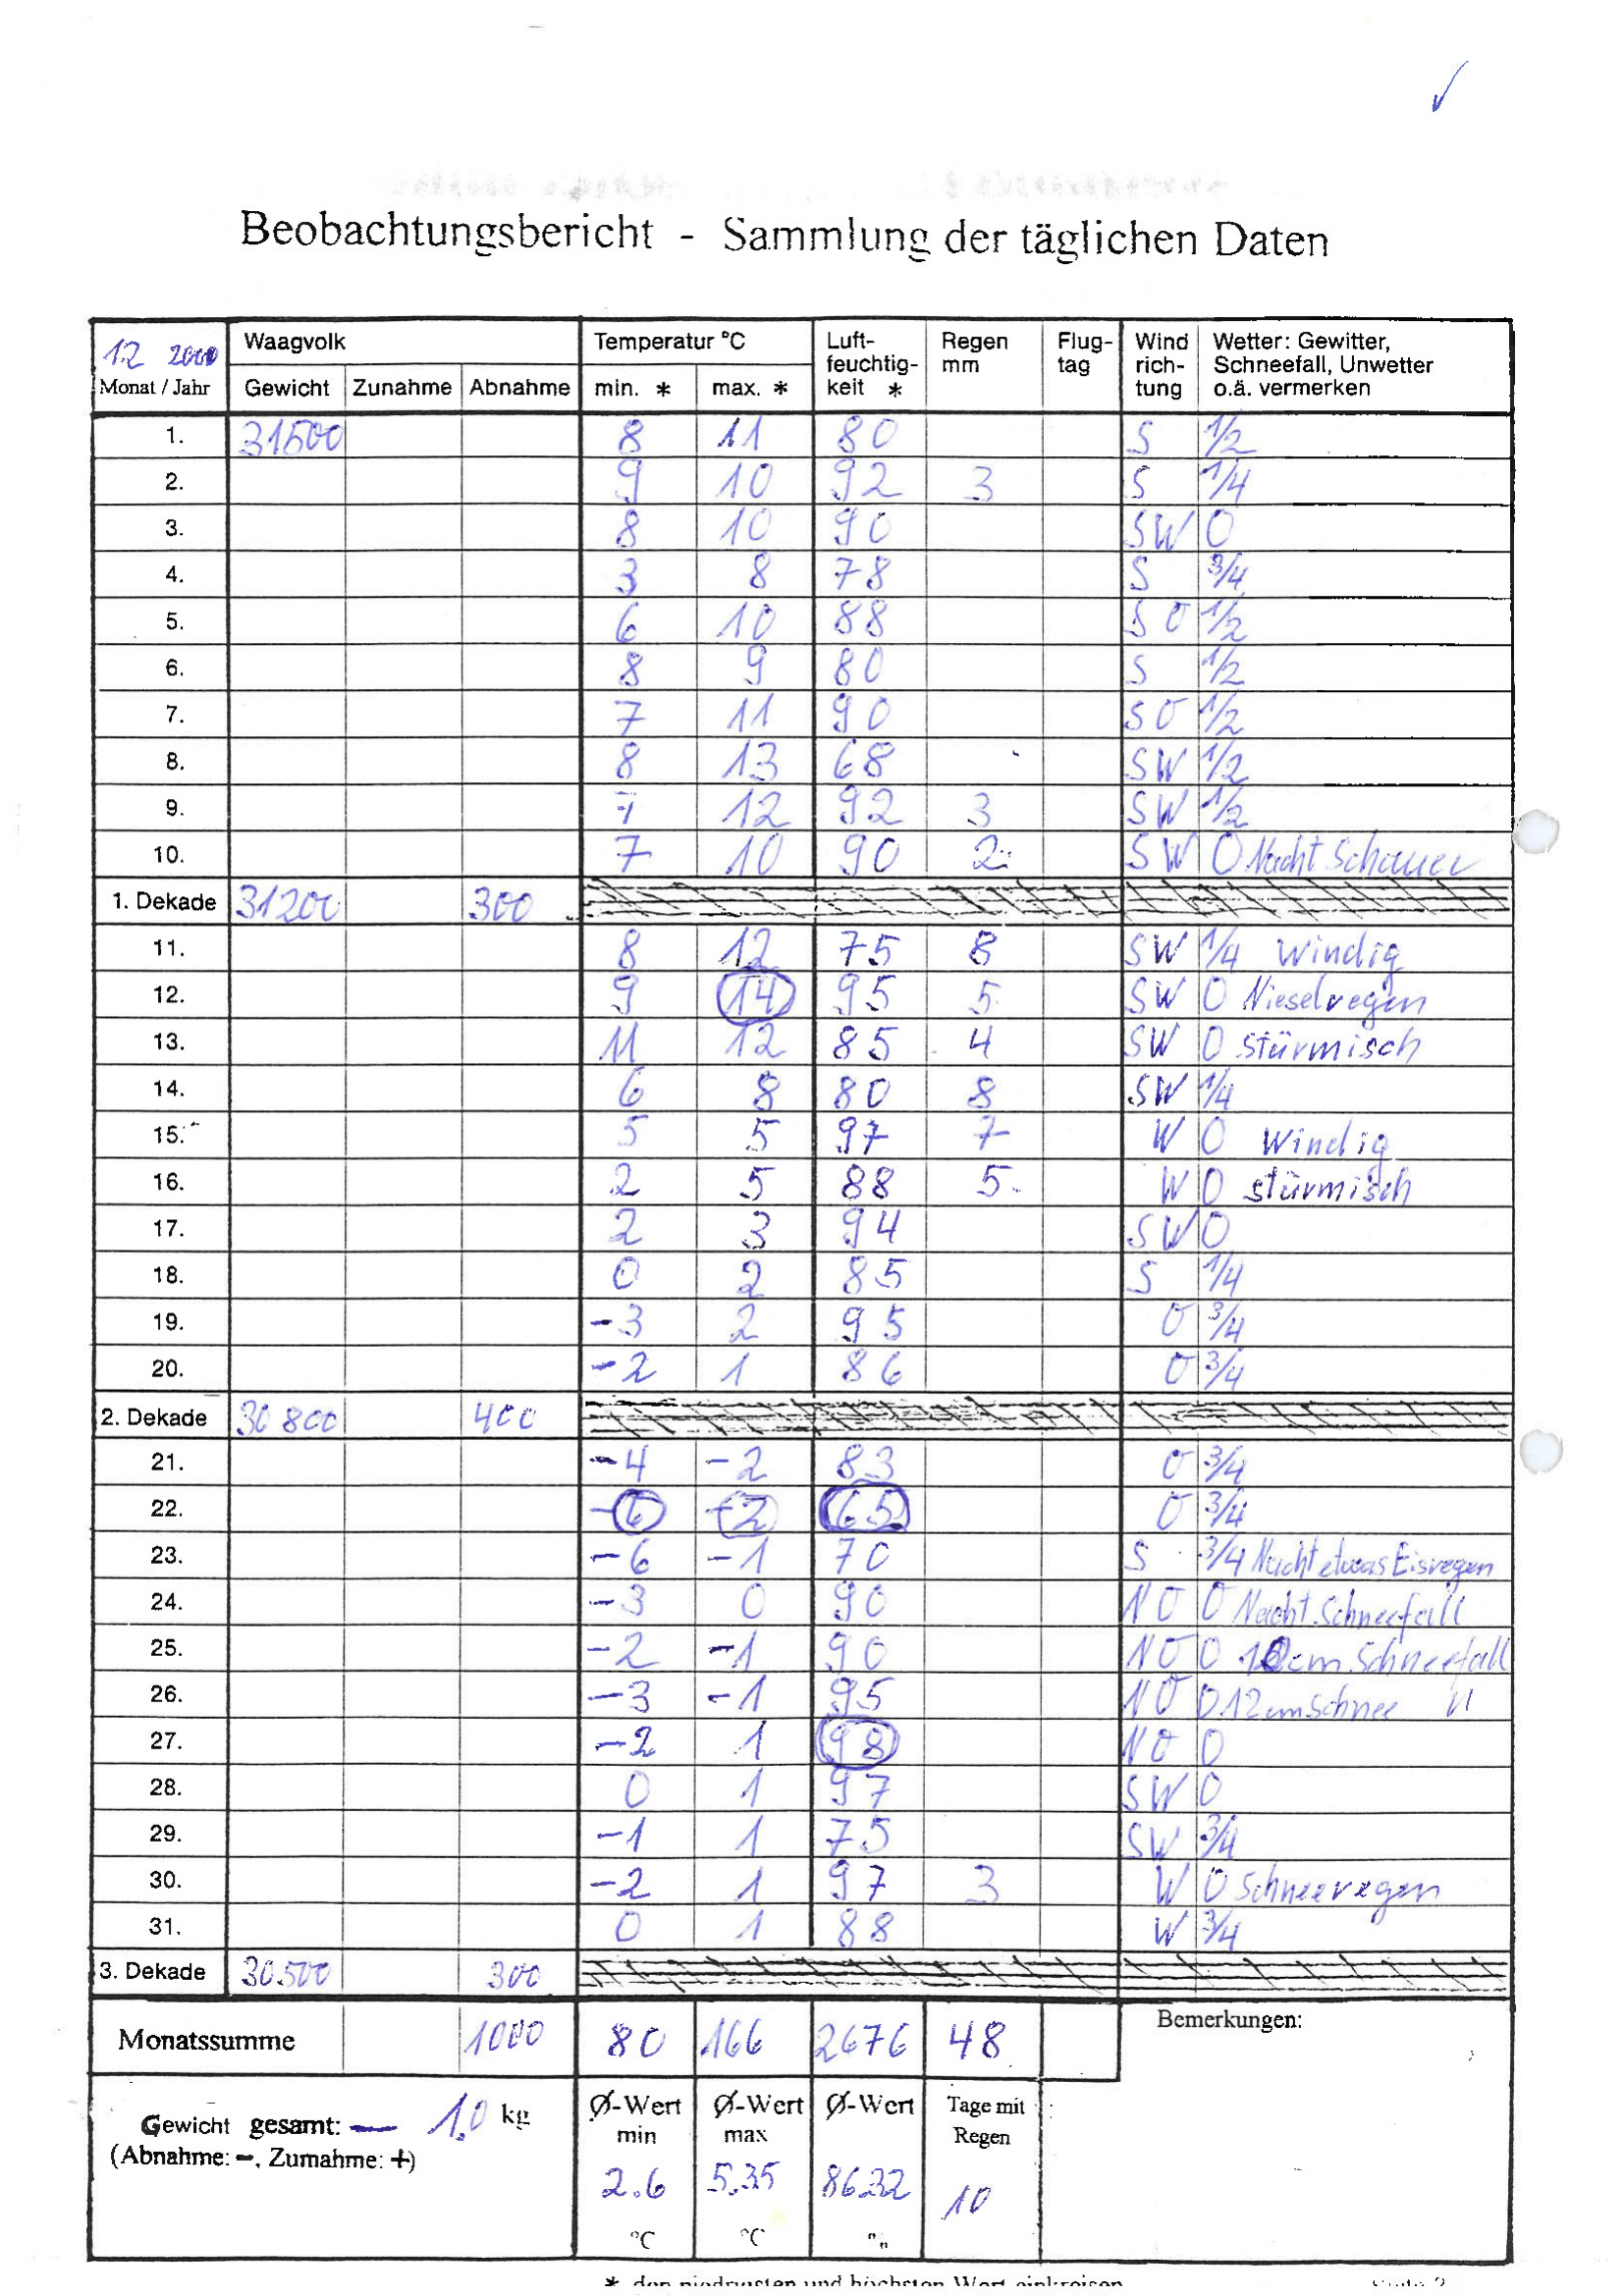 Beobachtungsbericht - Sammlung der täglichen Daten
12 2000 Waagvolk Temperatur °C Luft- Regen Flug- Wind Wetter: Gewitter,
feuchtig- mm tag rich- Schneefall, Unwetter
Monat / Jahr Gewicht Zunahme Abnahme min. * max. * keit * tung o.ä. vermerken
1. 31500 8 11 80 S 1/2
2. 9 10 92 3 S 1/4
3. 8 10 90 SW 0
4. 3 8 78 S 3/4
5. 6 10 88 SO 1/2
6. 8 9 80 S 1/2
7. 7 11 90 SO 1/2
8. 8 13 68 SW 1/2
9. 7 12 92 3 SW 1/2
10. 7 10 90 2 SW 0 Nacht Schauer
1. Dekade 31200 300
11. 8 12 75 8 SW 1/4 Windig
12. 9 14 95 5 SW 0 Nieselregen
13. 11 12 85 4 SW 0 stürmisch
14. 6 8 80 8 SW 1/4
15. 5 5 97 7 W 0 Windig
16. 2 5 88 5 W 0 stürmisch
17. 2 3 94 SW 0
18. 0 2 85 S 1/4
19. -3 2 95 O 3/4
20. -2 1 86 O 3/4
2. Dekade 30800 400
21. -4 -2 83 O 3/4
22. -6 -2 65 O 3/4
23. -6 -1 70 S 3/4 Nacht etwas Eisregen
24. -3 0 90 NO 0 Nacht Schneefall
25. -2 -1 90 NO 0 10cm Schneefall
26. -3 -1 95 NO 0 12cm Schnee "
27. -2 1 98 NO 0
28. 0 1 97 SW 0
29. -1 1 75 SW 3/4
30. -2 1 97 3 W 0 Schneeregen
31. 0 1 88 W 3/4
3. Dekade 30.500 300
Monatssumme 1000 80 166 2676 48 Bemerkungen:
Gewicht gesamt: - 1,0 kg Ø-Wert Ø-Wert Ø-Wert Tage mit
(Abnahme: -, Zumahme: +) min max Regen
2.6 5,35 8632 10
°C °C
* den niedrigsten und höchsten Wert einkreisen